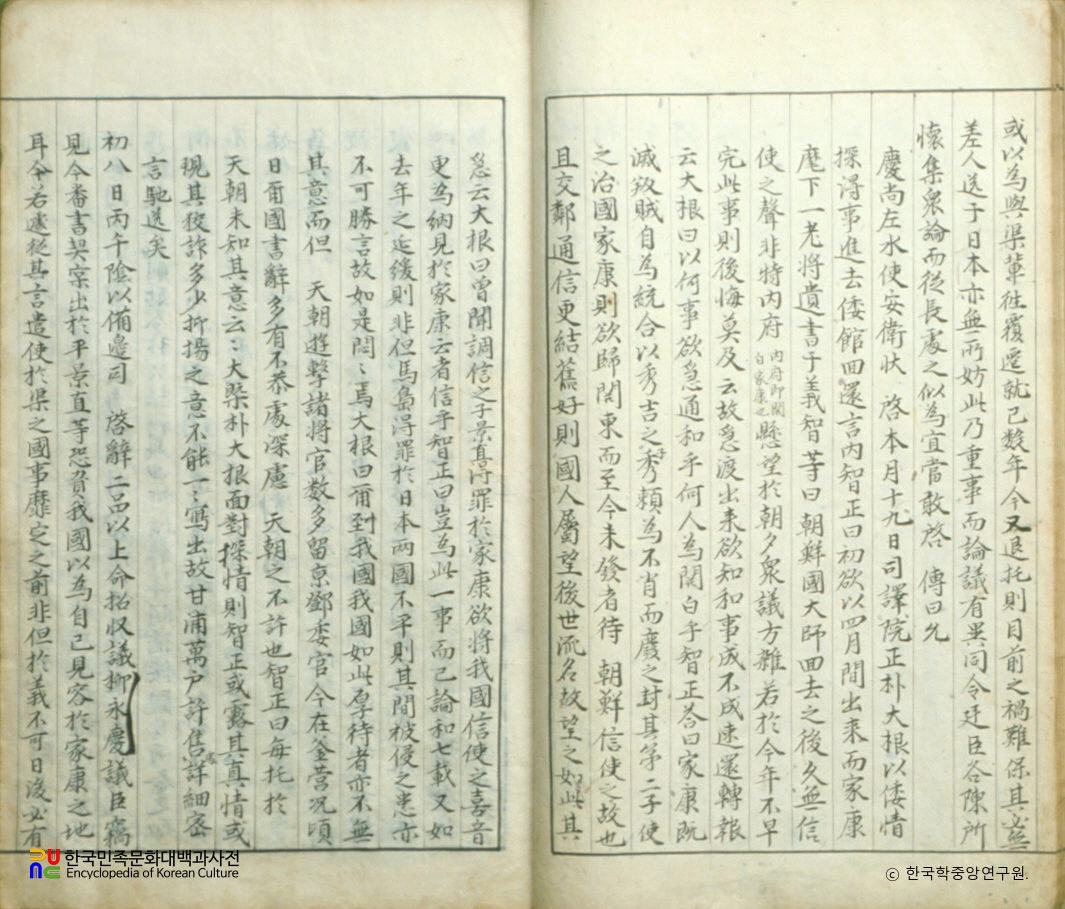 或以為與渠輩往覆遷就已數年今又退托則目前之禍難保其必無
差人送于日本亦無所妨此乃重事而論議有異同令廷臣各陳所
懷集衆論而從長處之似為宜當敢啓 傳曰允
慶尙左水使安衛狀 啓本月十九日司譯院正朴大根以倭情
探淂事進去倭館回還言內智正曰初欲以四月間出来而家康
麾下一老將遺書于義智等曰 朝鮮國大師回去之後久無信
使之聲非特內府內府即關白家康也懸望於朝夕衆議方雜若於今年不早
完此事則後悔莫及云故急渡出来欲知和事成不成速還轉報
云大根曰以何事欲急通和乎何人為関白乎智正荅曰家康既
滅敎賊自為統合以秀吉之子秀頼為不肖而廢之封其第二子使
之治國家康則欲歸関東而至今未發者待 朝鮮信使之故也
且交鄰通信更結舊好則國人屬望後世流名故望之如此其
急云大根曰曾聞調信之子景直淂罪於家康欲將我國信使之喜音
更為納見於家康云者信乎智正曰豈為此一事而已論和七載又如
去年之延緩則非但馬島淂罪於日本两國不平則其間被侵之患亦
不可勝言故如是悶〻焉大根曰爾到我國我國如此厚待者亦不無
其意而但 天朝遊擊諸將官数多留京鄧委官今在釜營况頃
日爾國書辭多有不恭處深慮 天朝之不許也智正曰每托於
天朝未知其意云〻大槩朴大根面對探情則智正或露其真情或
現其狡詐多少抑揚之意不能一〻寫出故甘浦萬户許售詳細密
言馳送矣
初八日丙午陰以備邊司 啓辭二品以上命招収議柳永慶議臣竊
見今番書契宲出於平景直等恐賁我國以為自己見容於家康之地
耳今若遽從其言遣使於渠之國事靡定之前非但於義不可日後必有
한국민족문화대백과사전
Encyclopedia of Korean Culture
© 한국학중앙연구원.